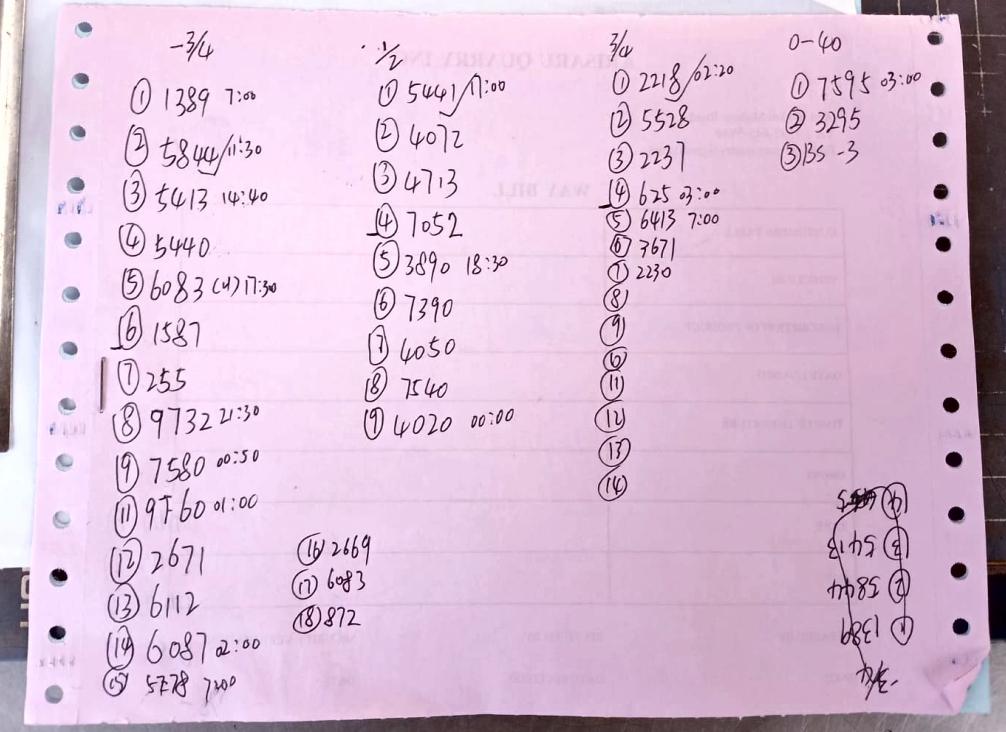 -3/4
① 1389 7:00
② 5844/11:30
③ 5413 14:40
④ 5440
⑤ 6083 17:30
⑥ 1587
⑦ 255
⑧ 9732 21:30
⑨ 7580 00:50
⑪ 9760 01:00
⑫ 2671
⑬ 6112
⑭ 6087 02:00
⑮ 5778 7:00
⑯ 2669
⑰ 6083
⑱ 872
1/2
① 5441/17:00
② 4072
③ 4713
④ 7052
⑤ 3890 18:30
⑥ 7390
⑦ 4050
⑧ 7540
⑨ 4020 00:00
3/4
① 2218/02:20
② 5528
③ 2237
④ 625 03:00
⑤ 6413 7:00
⑥ 3671
⑦ 2230
⑧
⑨
⑩
⑪
⑫
⑬
⑭
0-40
① 7595 03:00
② 3295
③ BS-3
-3/4
① 1389
② 5844
③ 5413
④
WAY BILL